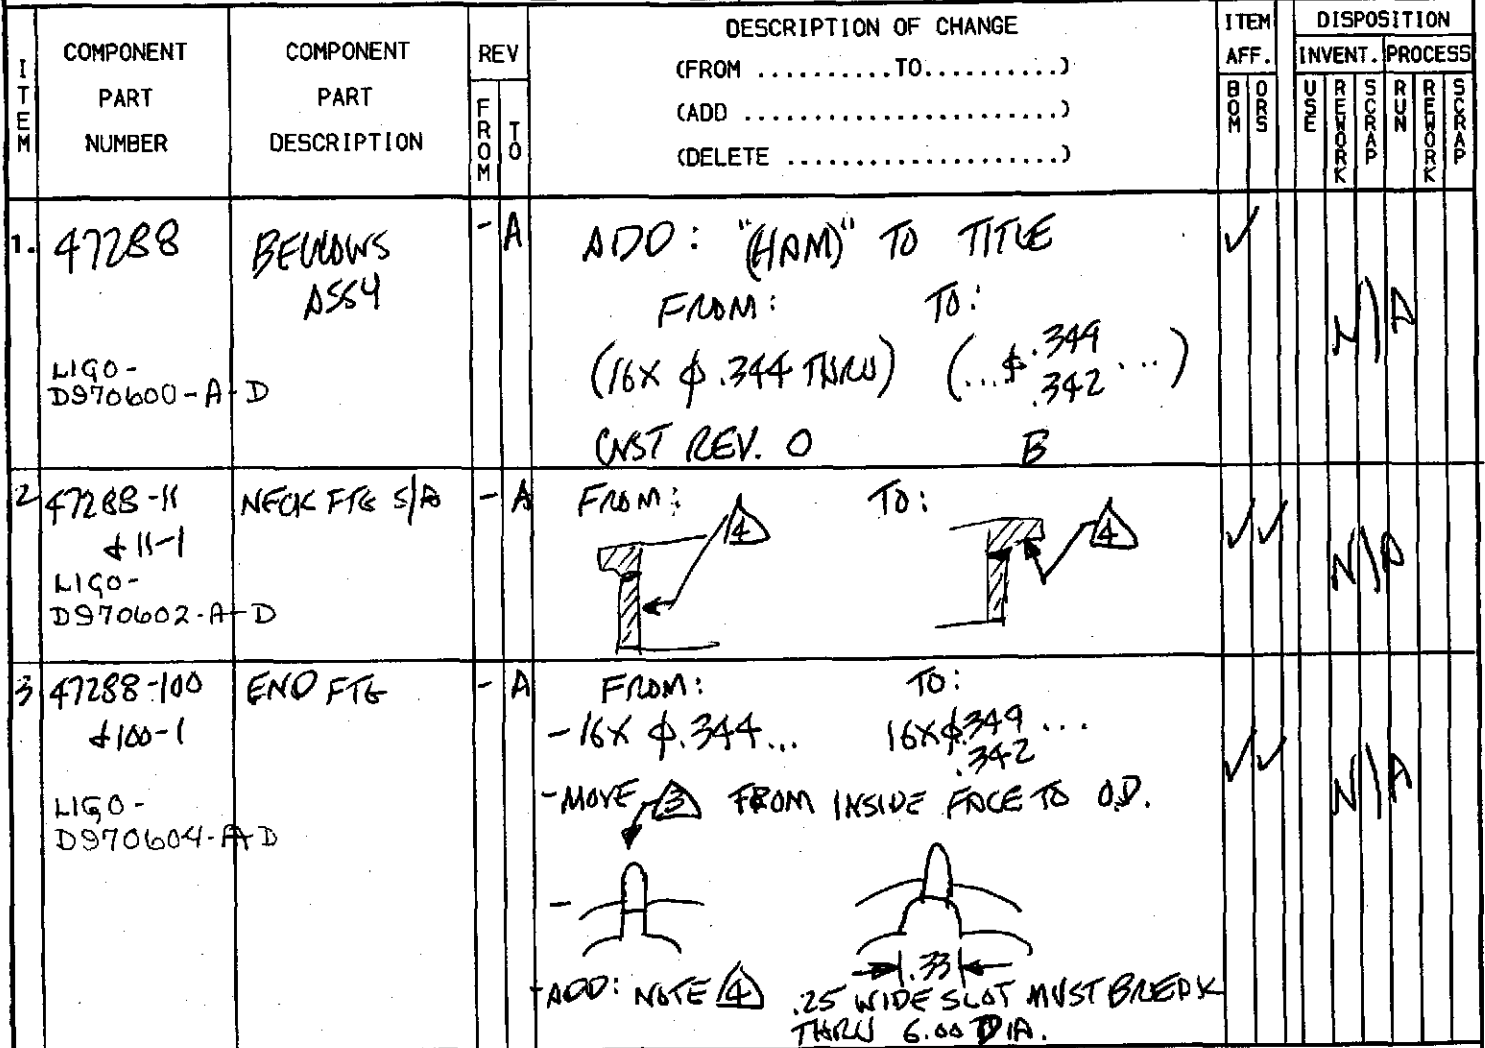 ITEM
COMPONENT PART NUMBER
COMPONENT PART DESCRIPTION
REV
FROM
TO
DESCRIPTION OF CHANGE
(FROM ..........TO..........)
(ADD ......................)
(DELETE ....................)
ITEM AFF.
BOM
ORS
DISPOSITION
INVENT. PROCESS
USE
REWORK
SCRAP
RUN
REWORK
SCRAP
1. 47288
LIGO-
D970600-A-D
BELLOWS
ASSY
- A
ADD: "(HAM)" TO TITLE
FROM: TO:
(16X ϕ .344 THRU) (...ϕ .349 ...)
.342
CUST REV. O B
✓
N/A
2 47288-11
& 11-1
LIGO-
D970602-A-D
NECK FTG S/A
- A
FROM: TO:
4 4
✓ ✓
N/A
3 47288-100
& 100-1
LIGO-
D970604-A-D
END FTG
- A
FROM: TO:
-16X ϕ.344... 16X ϕ.349 ...
.342
-MOVE 3 FROM INSIDE FACE TO O.D.
-
.33
-ADD: NOTE 4
.25 WIDE SLOT MUST BREAK
THRU 6.00 DIA.
✓ ✓
N/A